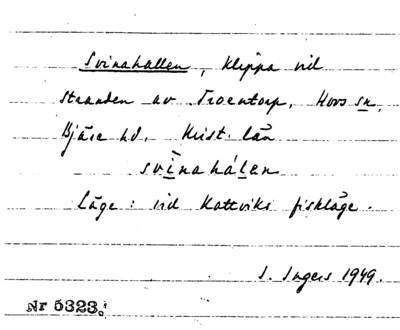 Svinahallen, klippa vid
stranden av Troentorp, Hovs sn,
Bjäre hd. Krist. län
svìnahálen
Läge: vid Kattviks fiskläge.
I. Ingers 1949.
Nr 5323.